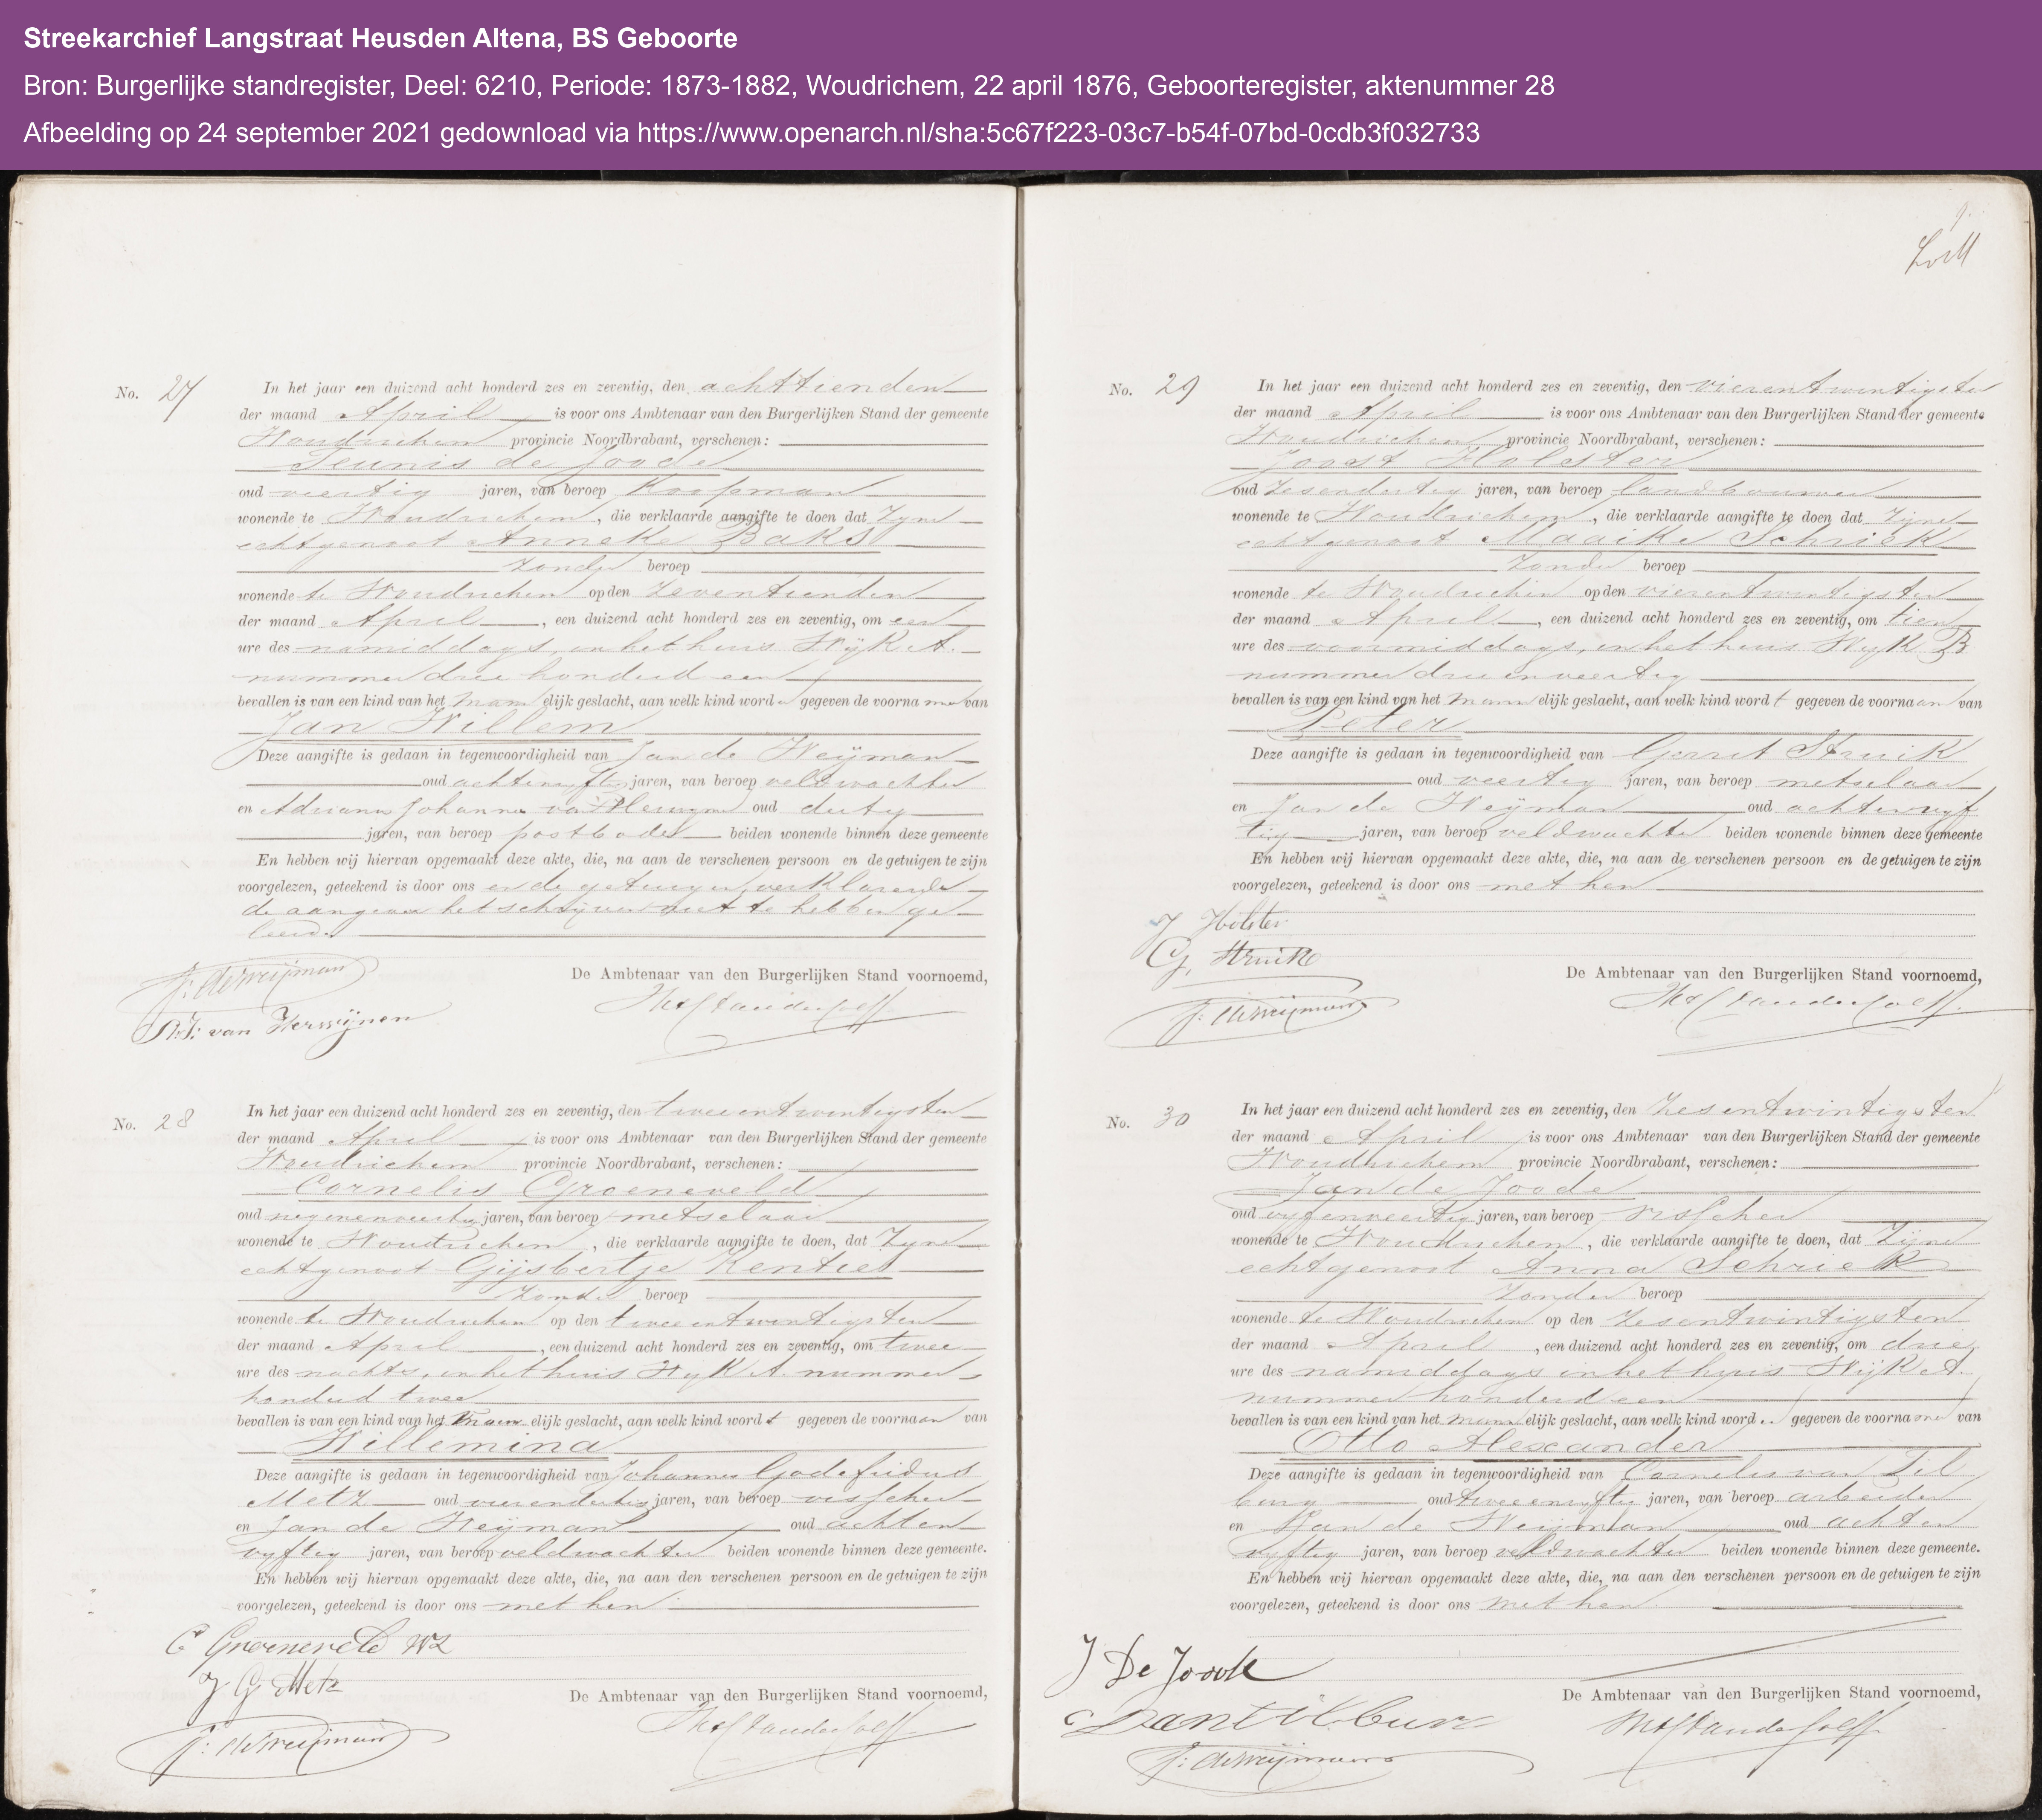 Streekarchief Langstraat Heusden Altena, BS Geboorte
Bron: Burgerlijke standregister, Deel: 6210, Periode: 1873-1882, Woudrichem, 22 april 1876, Geboorteregister, aktenummer 28
Afbeelding op 24 september 2021 gedownload via https://www.openarch.nl/sha:5c67f223-03c7-b54f-07bd-0cdb3f032733
No. 27
In het jaar een duizend acht honderd zes en zeventig, den achttienden
der maand April is voor ons Ambtenaar van den Burgerlijken Stand der gemeente
Woudrichem provincie Noordbrabant, verschenen:
Teunis de Joode
oud veertig jaren, van beroep Koopman
wonende te Woudrichem, die verklaarde aangifte te doen dat zyne
echtgenoot Anneke Baks
zonder beroep
wonende te Woudrichem op den zeventienden
der maand April, een duizend acht honderd zes en zeventig, om een
ure des namiddags, in het huis Wijk A.
nummer drie honderd een
bevallen is van een kind van het mannelijk geslacht, aan welk kind word gegeven de voorna men van
Jan Willem
Deze aangifte is gedaan in tegenwoordigheid van Jan de Weijman
oud achtenvyftig jaren, van beroep veldwachter
en Adrianus Johannes van Herwijnen oud dertig
jaren, van beroep postbode beiden wonende binnen deze gemeente
En hebben wij hiervan opgemaakt deze akte, die, na aan de verschenen persoon en de getuigen te zijn
voorgelezen, geteekend is door ons en de getuigen, verklarende
de aangever het schrijven niet te hebben ge-
leerd.
J: de Weijman
A.J. van Herwijnen
De Ambtenaar van den Burgerlijken Stand voornoemd,
No. 28
In het jaar een duizend acht honderd zes en zeventig, den tweeentwintigsten
der maand April is voor ons Ambtenaar van den Burgerlijken Stand der gemeente
Woudrichem provincie Noordbrabant, verschenen:
Cornelis Groeneveld
oud negenenveertig jaren, van beroep metselaar
wonende te Woudrichem, die verklaarde aangifte te doen, dat zyne
echtgenoot Gijsbertje Kentie
zonder beroep
wonende te Woudrichem op den tweeentwintigsten
der maand April, een duizend acht honderd zes en zeventig, om twee
ure des nachts, in het huis Wyk A. nummer
honderd twee
bevallen is van een kind van het elijk geslacht, aan welk kind wordt gegeven de voornaam van
Willemina
Deze aangifte is gedaan in tegenwoordigheid van Johannes Godefridus
Metz oud vierendertig jaren, van beroep visscher
en Jan de Weijman oud achten
vyftig jaren, van beroep veldwachter beiden wonende binnen deze gemeente.
En hebben wij hiervan opgemaakt deze akte, die, na aan den verschenen persoon en de getuigen te zijn
voorgelezen, geteekend is door ons met hen
C Groeneveld WZ
J G Metz
J: de Weijman
De Ambtenaar van den Burgerlijken Stand voornoemd,
No. 29
In het jaar een duizend acht honderd zes en zeventig, den vierentwintigsten
der maand April is voor ons Ambtenaar van den Burgerlijken Stand der gemeente
Woudrichem provincie Noordbrabant, verschenen:
Joost Holster
oud zesendertig jaren, van beroep landbouwer
wonende te Woudrichem, die verklaarde aangifte te doen dat zijne
echtgenoot Maaike Schriek
zonder beroep
wonende te Woudrichem op den vierentwintigsten
der maand April, een duizend acht honderd zes en zeventig, om tien
ure des voormiddags, in het huis Wyk B
nummer drieenveertig
bevallen is van een kind van het mannelijk geslacht, aan welk kind wordt gegeven de voornaam van
Peter
Deze aangifte is gedaan in tegenwoordigheid van Gerrit Struik
oud veertig jaren, van beroep metselaar
en Jan de Weijman oud achtenvyf
tig jaren, van beroep veldwachter beiden wonende binnen deze gemeente
En hebben wij hiervan opgemaakt deze akte, die, na aan de verschenen persoon en de getuigen te zijn
voorgelezen, geteekend is door ons met hen
J Holster
G, Struik
J: de Weijman
De Ambtenaar van den Burgerlijken Stand voornoemd,
No. 30
In het jaar een duizend acht honderd zes en zeventig, den zesentwintigsten
der maand April is voor ons Ambtenaar van den Burgerlijken Stand der gemeente
Woudrichem provincie Noordbrabant, verschenen:
Jan de Joode
oud vyfenveertig jaren, van beroep visscher
wonende te Woudrichem, die verklaarde aangifte te doen, dat zijne
echtgenoot Anna Schriek
zonder beroep
wonende te Woudrichem op den zesentwintigsten
der maand April, een duizend acht honderd zes en zeventig, om drie
ure des namiddags in het huis Wijk A.
nummer honderd een
bevallen is van een kind van het mannelijk geslacht, aan welk kind word.. gegeven de voorna men van
Otto Alexander
Deze aangifte is gedaan in tegenwoordigheid van Cornelis van Til
burg oud tweeenvyftig jaren, van beroep arbeider
en Jan de Weijman oud achten
vyftig jaren, van beroep veldwachter beiden wonende binnen deze gemeente.
En hebben wij hiervan opgemaakt deze akte, die, na aan den verschenen persoon en de getuigen te zijn
voorgelezen, geteekend is door ons met hen
J De Joode
C van tilburg
J: de Weijman
De Ambtenaar van den Burgerlijken Stand voornoemd,